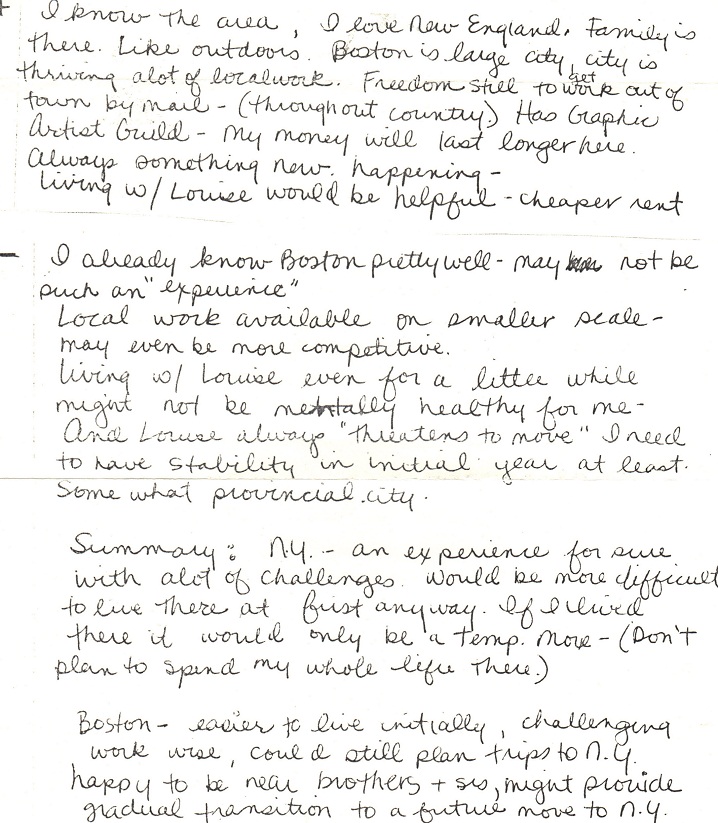 + I know the area, I love New England. Family is
there. Like outdoors. Boston is large city, city is
thriving alot of localwork. Freedom still to get work out of
town by mail - (throughout country) Has Graphic
Artist Guild - My money will last longer here.
Always something new. happening -
Living w/ Louise would be helpful - cheaper rent
- I already know Boston pretty well - may not be
such an "experience"
Local work available on smaller scale -
may even be more competitive.
Living w/ Louise even for a little while
might not be mentally healthy for me -
And Louise always "threatens to move" I need
to have stability in initial year at least.
Some what provincial city.
Summary: N.Y. - an experience for sure
with alot of challenges. Would be more difficult
to live there at first anyway. If I lived
there it would only be a temp. move - (Don't
plan to spend my whole life there.)
Boston - easier to live initially, challenging
work wise, could still plan trips to N.Y.
happy to be near brothers + sis, might provide
gradual transition to a future move to N.Y.